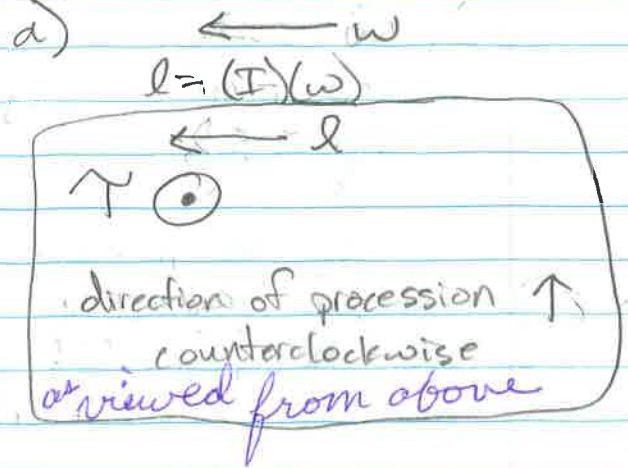 a) ← w
l = (I)(w)
← l
τ ⊙
direction of procession ↑
counterclockwise
as viewed from above